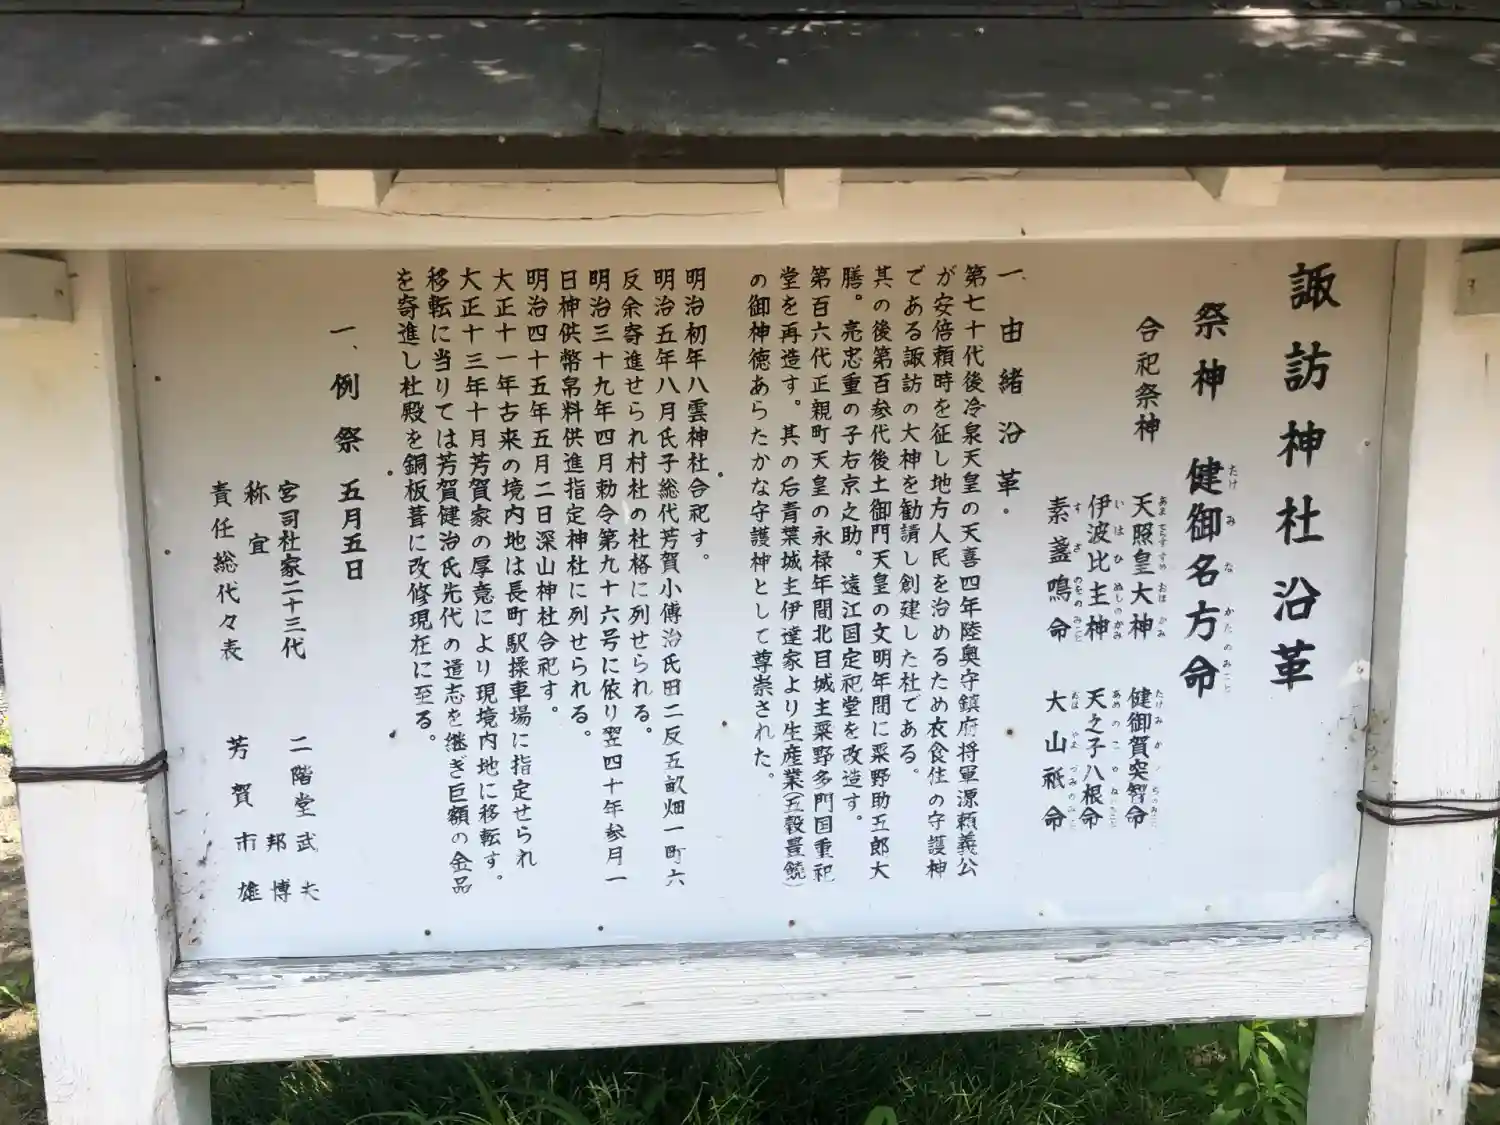 諏訪神社沿革
祭神 健御名方命
合祀祭神
天照皇大神 健御賀突智命
伊波比主神 天之子八根命
素盞鳴命 大山祇命
一、由緒沿革
第七十代後冷泉天皇の天喜四年陸奥守鎮府将軍源頼義公
が安倍頼時を征し地方人民を治めるため衣食住の守護神
である諏訪の大神を勧請し創建した社である。
其の後第百参代後土御門天皇の文明年間に粟野助五郎大
膳。亮忠重の子右京之助。遠江国定祀堂を改造す。
第百六代正親町天皇の永禄年間北目城主粟野多門国重祀
堂を再造す。其の后青葉城主伊達家より生産業(五穀豊饒)
の御神徳あらたかな守護神として尊崇された。
明治初年八雲神社合祀す。
明治五年八月氏子総代芳賀小傳治氏田二反五畝畑一町六
反余寄進せられ村社の社格に列せられる。
明治三十九年四月勅令第九十六号に依り翌四十年参月一
日神供幣帛料供進指定神社に列せられる。
明治四十五年五月二日深山神社合祀す。
大正十一年古来の境内地は長町駅操車場に指定せられ
大正十三年十月芳賀家の厚意により現境内地に移転す。
移転に当りては芳賀健治氏先代の遺志を継ぎ巨額の金品
を寄進し社殿を銅板葺に改修現在に至る。
一、例祭 五月五日
宮司社家二十三代 二階堂武夫
称宜 邦博
責任総代々表 芳賀市雄